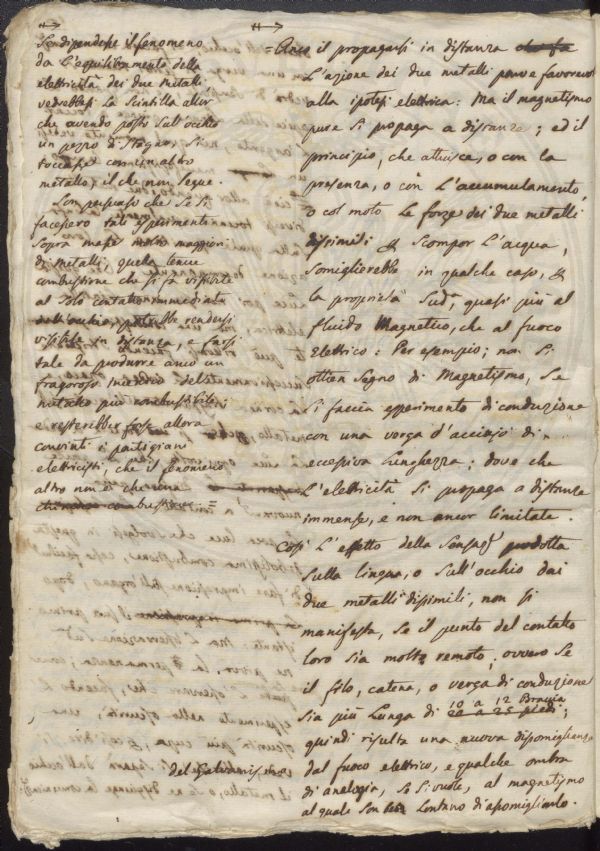 Se dipendesse il fenomeno
da L'equilibramento della
elettricità dei due Metalli
vedrebbesi La Scintilla allor
che avendo posto sull'occhio
un pezzo di Stagno, si
toccasse con un altro
metallo; il che non segue.
Son persuaso che se si
facessero tali sperimenti
sopra masse molto maggiori
di Metalli, quella tenue
combustione che si fa visibile
al solo contatto immediato
dell'occhio, potrebbe rendersi
visibile in distanza, e farsi
tale da produrre anco un
fragoroso incendio del
metallo più combustibile;
e resterebber forse allora
convinti i partigiani
elettricisti, che il fenomeno
altro non è che una
combustione =
del Galvanismo
= Anco il propagarsi in distanza
L'azione dei due metalli pareva favorevole
alla ipotesi elettrica: Ma il magnetismo
pure si propaga a distanze; ed il
principio, che attuisce, o con la
presenza, o con L'accumulamento,
o col moto Le forze dei due metalli
dissimili & scompor L'acqua,
somiglierebbe in qualche caso, &
la proprietà Sudª, quasi più al
fluido Magnetico, che al fuoco
Elettrico: Per esempio; non si
ottien segno di Magnetismo, se
si faccia esperimento di conduzione
con una verga d'acciajo di
eccessiva Lunghezza; dove che
L'elettricità si propaga a distanze
immense, e non ancor limitate.
Così L'effetto della Sensazᵉ prodotta
sulla lingua, o sull'occhio dai
due metalli dissimili, non si
manifesta, se il punto del contatto
loro sia molto remoto, ovvero se
il filo, catena, o verga di conduzione
sia più Lunga di 20 a 25 piedi; 10 a 12 Braccia
quindi risulta una nuova dissomiglianza
dal fuoco elettrico, e qualche ombra
di analogia, se si vuole, al magnetismo
al quale son Lontano d'assomigliarlo.